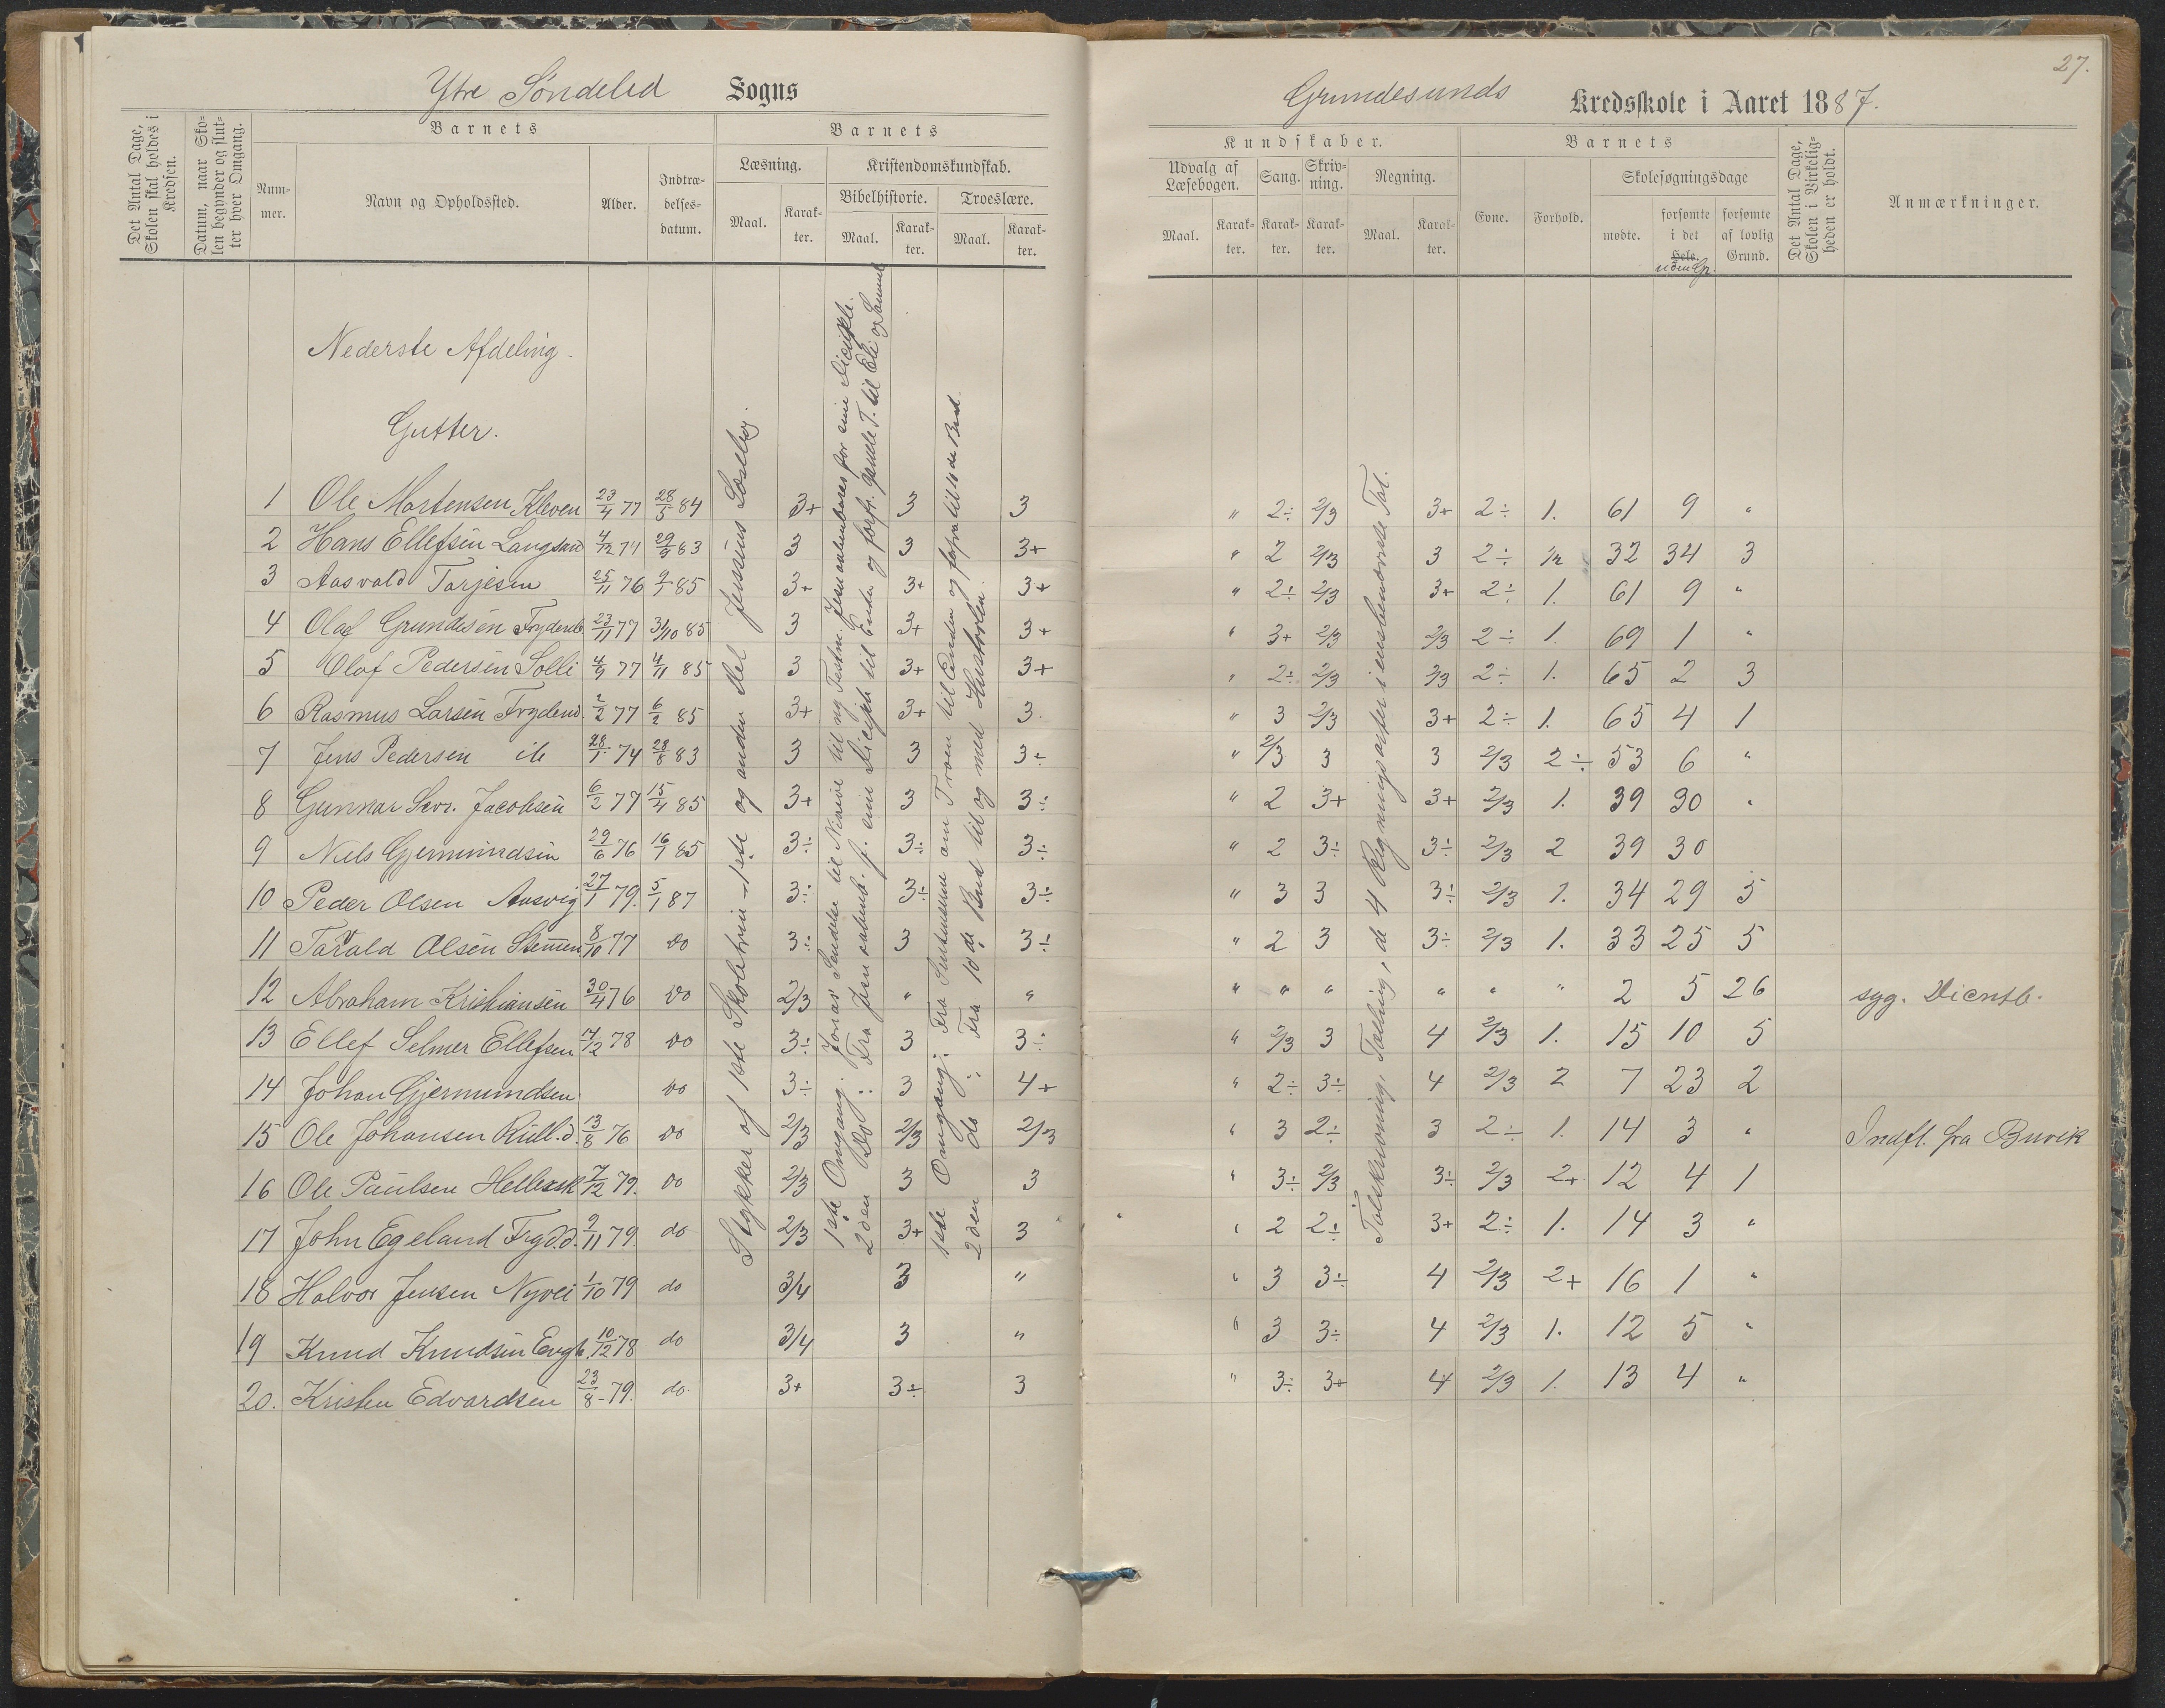 Ytre Søndeled Sogns
Det Antal Dage, Skolen skal holdes i Kredsen.
Datum, naar Skolen begynder og slutter hver Omgang.
Barnets
Nummer.
Navn og Opholdssted.
Alder.
Indtrædelsesdatum.
Barnets
Læsning.
Maal.
Karakter.
Kristendomskundskab.
Bibelhistorie.
Maal.
Karakter.
Troeslære.
Maal.
Karakter.
Nederste Afdeling.
Gutter.
1 Ole Mortensen Kleven 23/4 77 28/5 84 3+ 3 3
2 Hans Ellefsen Langsand 4/12 74 29/9 83 3 3 3+
3 Aasvald Tarjesen 25/11 76 9/1 85 3+ 3+ 3+
4 Olaf Grundesen Frydenb. 23/11 77 31/10 85 3 3+ 3+
5 Olaf Pedersen Solli 4/9 77 4/11 85 3 3+ 3+
6 Rasmus Larsen Frydend. 2/2 77 6/2 85 3+ 3+ 3.
7 Jens Pedersen ib 28/1 74 28/8 83 3 3 3÷
8 Gunnar Sevr. Jacobsen 6/2 77 15/4 85 3+ 3 3÷
9 Niels Gjermundsen 29/6 76 16/1 85 3÷ 3÷ 3÷
10 Peder Olsen Aasvig 27/1 79. 5/1 87 3÷ 3÷ 3÷
11 Tarvald Olsen Stemmen 8/10 77 do 3÷ 3 3÷
12 Abraham Kristiansen 30/4 76 do 2/3 " "
13 Ellef Selmer Ellefsen 17/12 78 do 3÷ 3 3÷
14 Johan Gjermundsen do 3÷ 3 4+
15 Ole Johansen 13/8 76 do 2/3 2/3 2/3
16 Ole Paulsen Hellersk 7/12 79. do 2/3 3 3
17 John Egeland Fryd.d. 9/11 79. do 2/3 3+ 3
18 Halvor Jensen Nyvei 1/10 79 do 3/4 3 "
19 Knud Knudsen Engh. 10/12 78 do 3/4 3 "
20. Kristen Edvardsen 23/8 - 79. do. 3+ 3÷ 3
Stykker af 1ste Skoletrin - 1ste og anden Del Jensens Læsebog.
1ste Omgang: Jonas' Sendelse til Ninive til ny Testm. Jesu aabenbares for sine Disciple.
2den Do: Fra Jesu aabenb. f. sine Disciple til Enden og forfr. gamle T. til Eli og Samuel
1ste Omgang: Fra om Troen til Enden og forfra til 10de Bud.
2den do: Fra 10de Bud til og med Hustavlen.
27.
Grundesunds Kredsskole i Aaret 1887.
Kundskaber.
Udvalg af Læsebogen.
Maal.
Karakter.
Sang.
Karakter.
Skrivning.
Karakter.
Regning.
Maal.
Karakter.
Barnets
Evne.
Forhold.
Skolesøgningsdage
mødte.
forsømte i det Hele.
uden Gr.
forsømte af lovlig Grund.
Det Antal Dage, Skolen i Virkeligheden er holdt.
Anmærkninger.
" 2÷ 2/3 3+ 2÷ 1. 61 9 "
" 2 2/3 3 2÷ 1/2 32 34 3
" 2÷ 2/3 3+ 2÷ 1. 61 9 "
" 3+ 2/3 2/3 2÷ 1. 69 1 "
" 2÷ 2/3 2/3 2÷ 1. 65 2 3
" 3 2/3 3+ 2÷ 1. 65 4 1
" 2/3 3 3 2/3 2÷ 53 6 "
" 2 3+ 3+ 2/3 1. 39 30 "
" 2 3÷ 3÷ 2/3 2 39 30
" 3 3 3÷ 2/3 1. 34 29 5
" 2 3 3÷ 2/3 1. 33 25 5
" " " " " " 2 5 26 syg. Dientb.
" 2/3 3 4 2/3 1. 15 10 5
" 2÷ 3÷ 4 2/3 2 7 23 2
" 3 2÷ 3 2÷ 1. 14 3 " Indfl. fra Buvik
" 3÷ 2/3 3÷ 2/3 2+ 12 4 1
" 2 2÷ 3+ 2÷ 1. 14 3 "
" 3 3÷ 4 2/3 2+ 16 1 "
" 3 3÷ 4 2/3 1. 12 5 "
" 3÷ 3+ 4 2/3 1. 13 4 "
Talskrivning, Tælling, de 4 Regningsarter i ensbenævnte Tal.